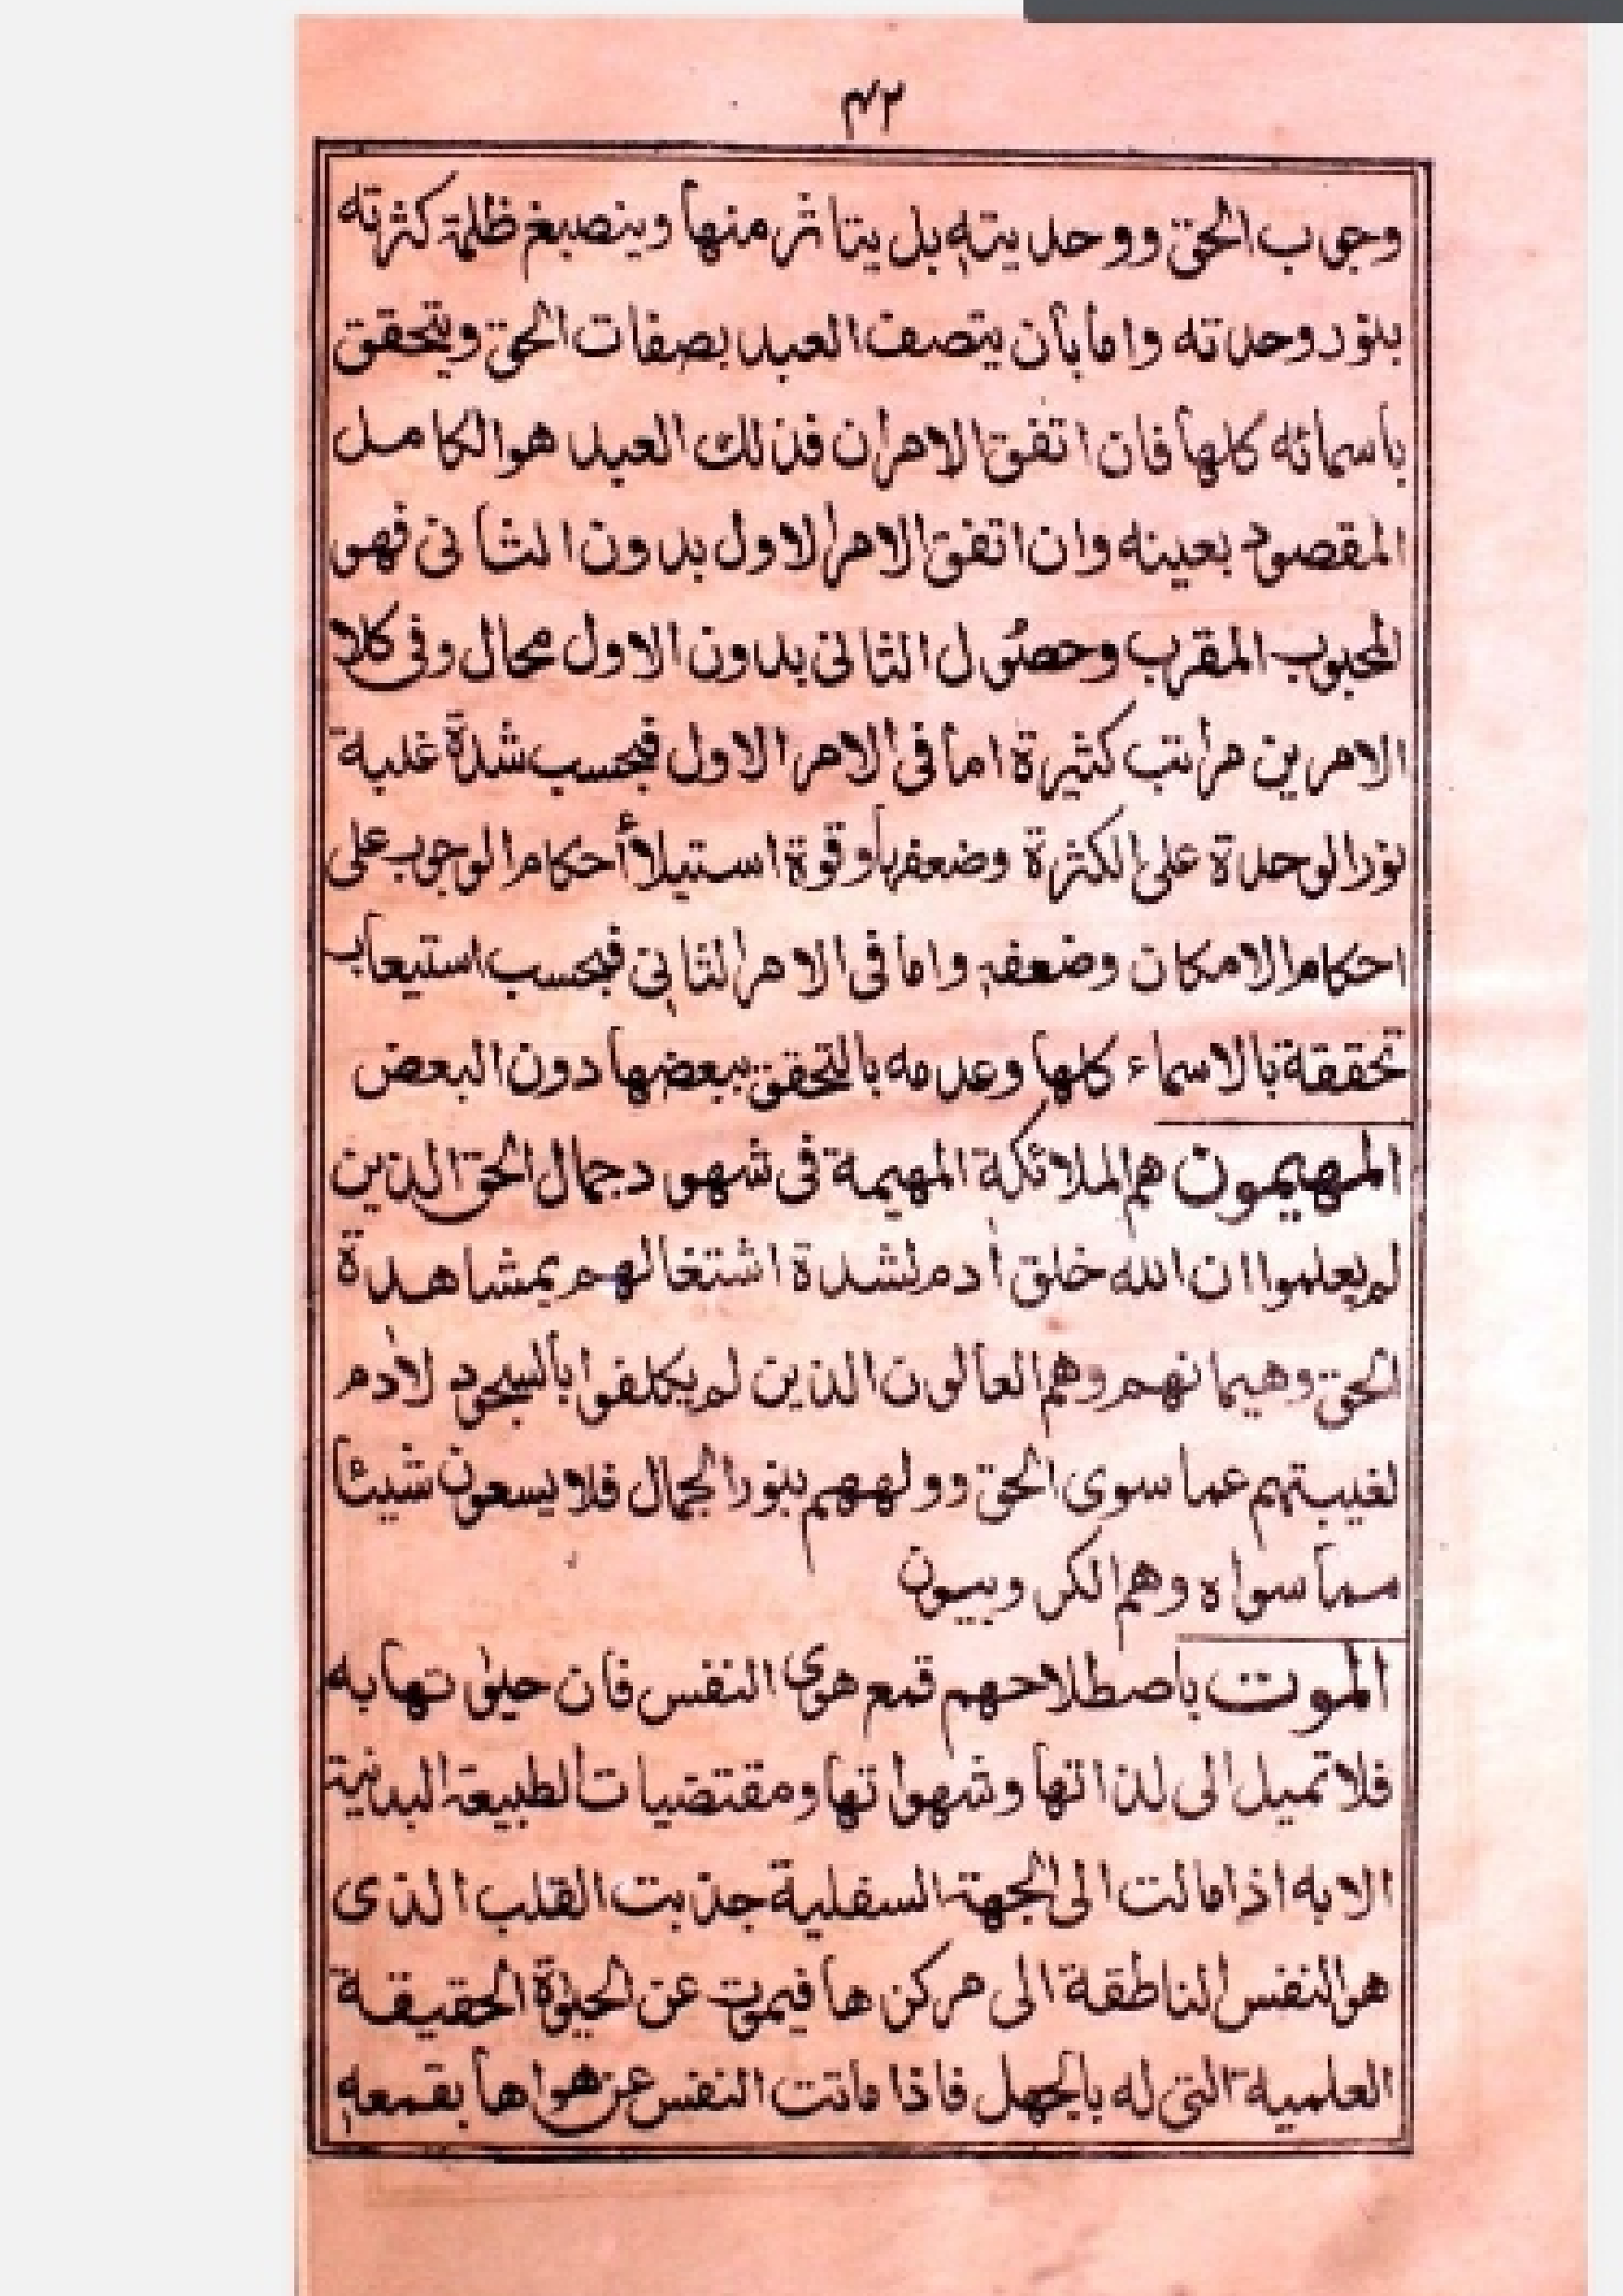 ۴۲
وجوب الحق ووحديته بل يتاثر منها وينصبغ ظلمة كثرته
بنور وحدته واما بان يتصف العبد بصفات الحق ويتحقق
باسمائه كلها فان اتفق الامران فذلك العبد هو الكامل
المقصود بعينه وان اتفق الامر الاول بدون الثانى فهو
المحبوب المقرب وحصول الثانى بدون الاول محال وفى كلا
الامرين مراتب كثيرة اما فى الامر الاول فبحسب شدة غلبة
نور الوحدة على الكثرة وضعفها وقوة استيلأ أحكام الوجوب على
احكام الامكان وضعفه واما فى الامر الثانى فبحسب استيعاب
تحققة بالاسماء كلها وعدمه بالتحقق ببعضها دون البعض
المهيمون هم الملائكة المهيمة فى شهود جمال الحق الذين
لم يعلموا ان الله خلق أدم لشدة اشتغالهم بمشاهدة
الحق وهيمانهم وهم العالون الذين لم يكلفوا بالسجود لأدم
لغيبتهم عما سوى الحق وولههم بنور الجمال فلا يسعون شيئا
مما سواه وهم الكروبيون
الموت باصطلاحهم قمع هوى النفس فان حيوتها به
فلا تميل الى لذاتها وشهواتها ومقتضيات الطبيعة البدنية
الا به اذا مالت الى الجهة السفلية جذبت القلب الذى
هو النفس الناطقة الى مركزها فيموت عن الحيوة الحقيقة
العلمية التى له بالجهل فاذا ماتت النفس عن هواها بقمعه